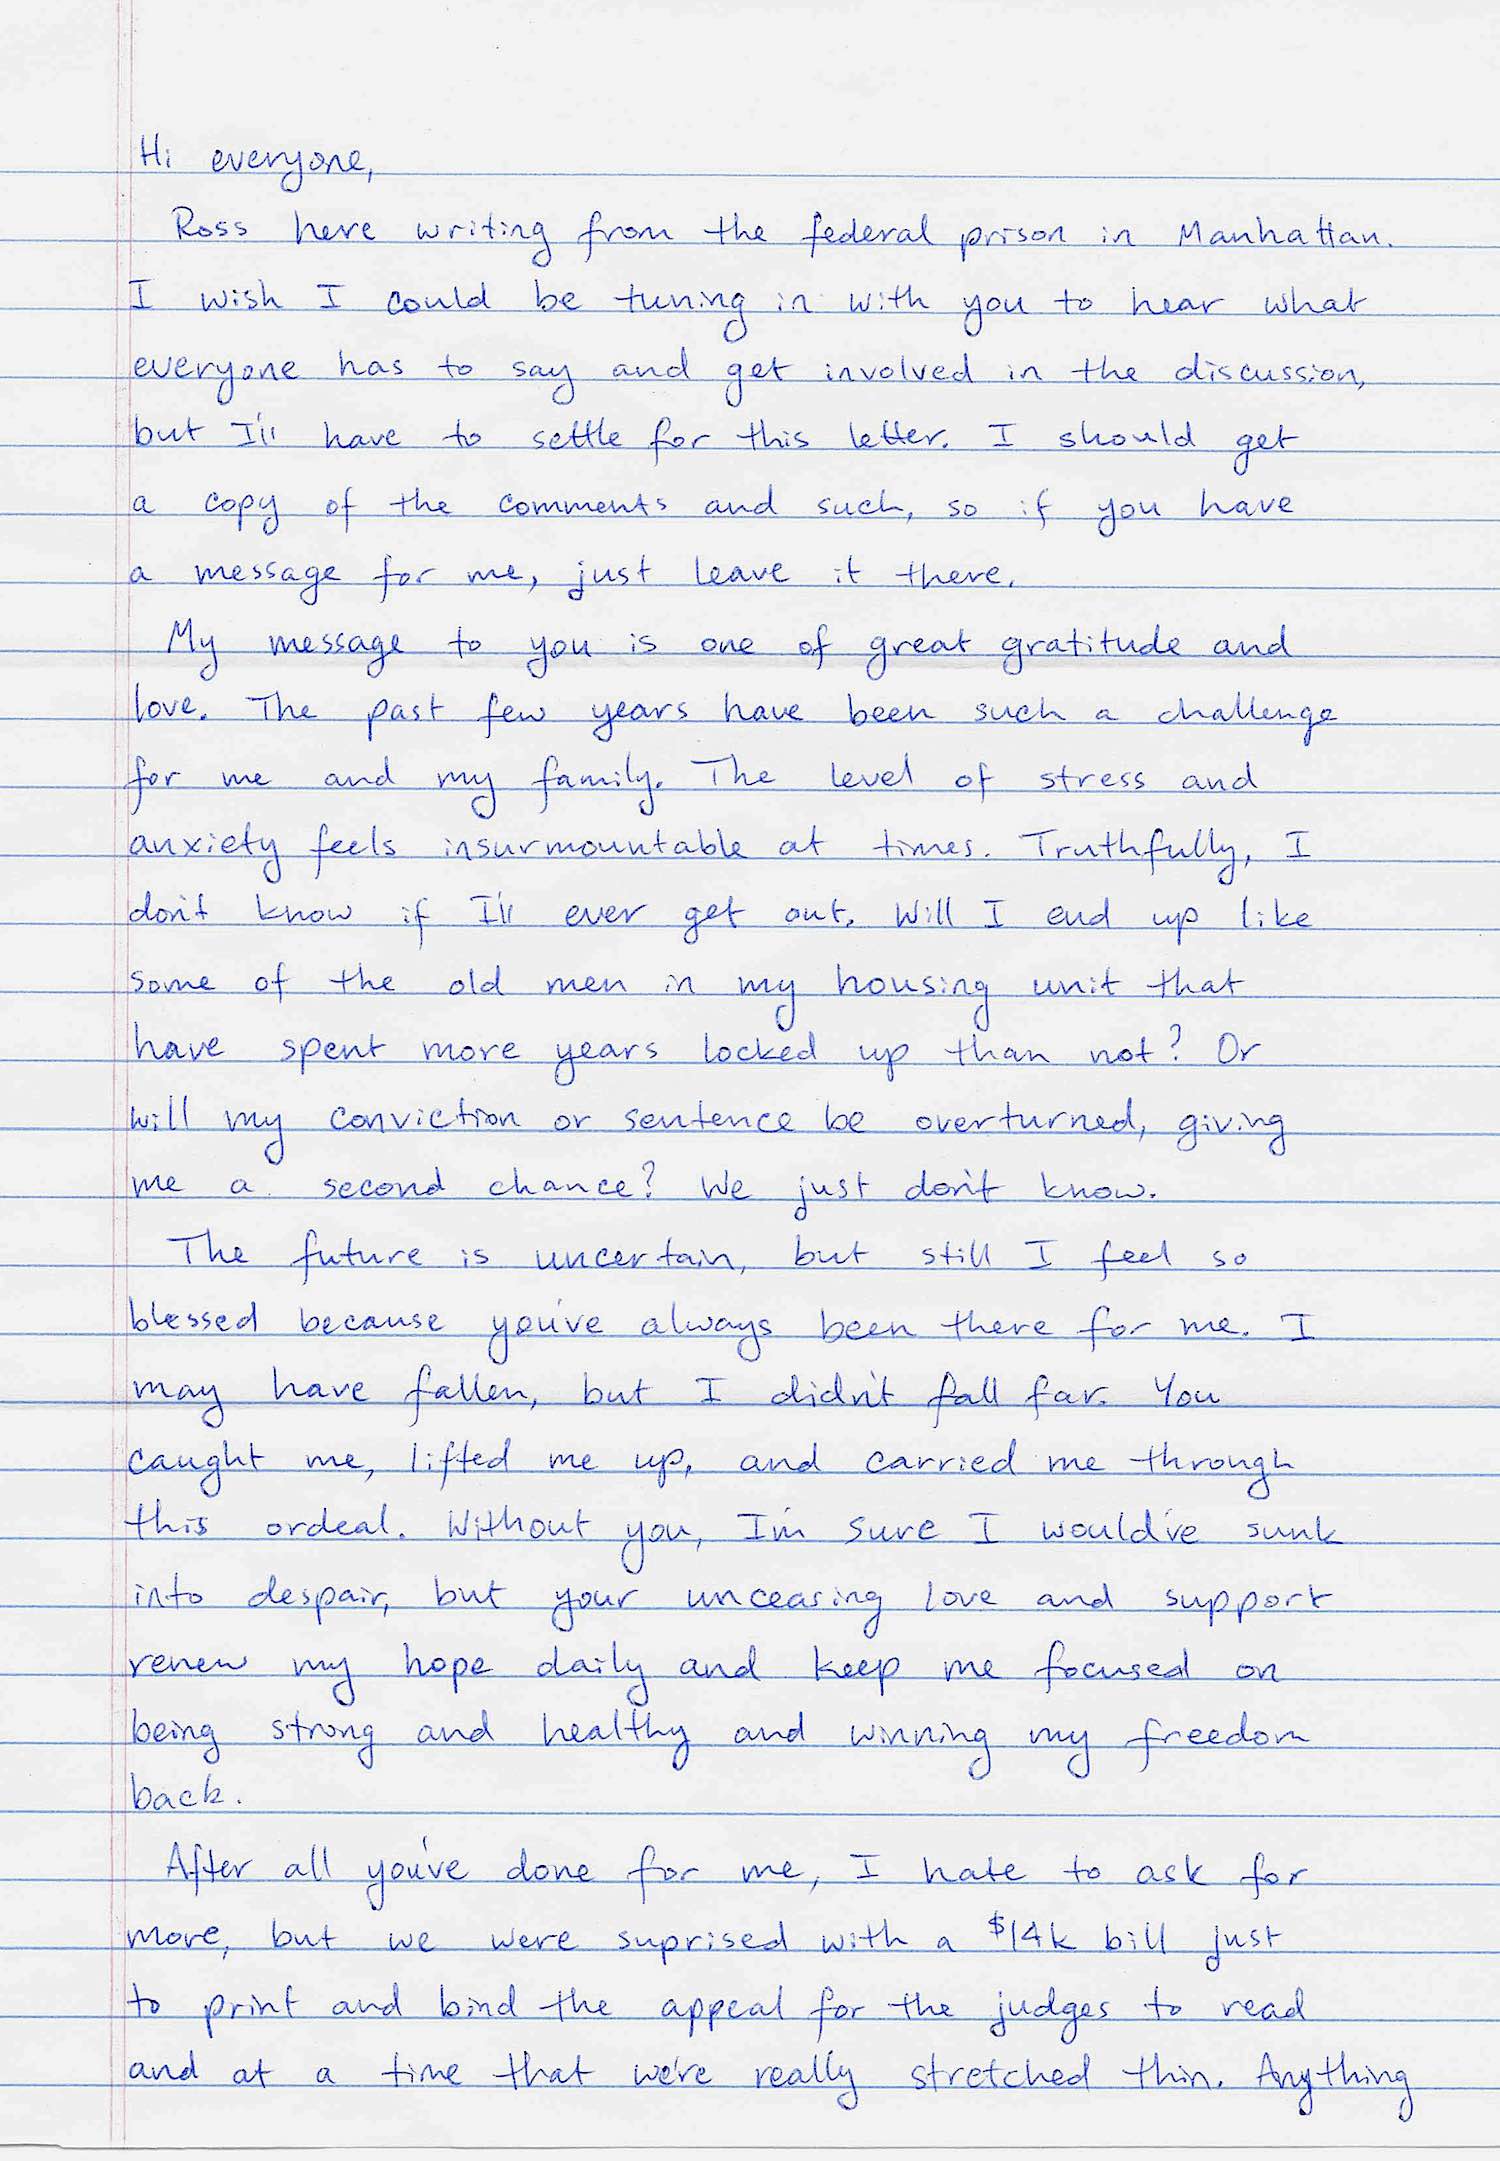 Hi everyone,
Ross here writing from the federal prison in Manhattan.
I wish I could be tuning in with you to hear what
everyone has to say and get involved in the discussion,
but I'll have to settle for this letter. I should get
a copy of the comments and such, so if you have
a message for me, just leave it there.
My message to you is one of great gratitude and
love. The past few years have been such a challenge
for me and my family. The level of stress and
anxiety feels insurmountable at times. Truthfully, I
don't know if I'll ever get out. Will I end up like
some of the old men in my housing unit that
have spent more years locked up than not? Or
will my conviction or sentence be overturned, giving
me a second chance? We just don't know.
The future is uncertain, but still I feel so
blessed because you've always been there for me. I
may have fallen, but I didn't fall far. You
caught me, lifted me up, and carried me through
this ordeal. Without you, I'm sure I would've sunk
into despair, but your unceasing love and support
renew my hope daily and keep me focused on
being strong and healthy and winning my freedom
back.
After all you've done for me, I hate to ask for
more, but we were suprised with a $14k bill just
to print and bind the appeal for the judges to read
and at a time that we're really stretched thin. Anything